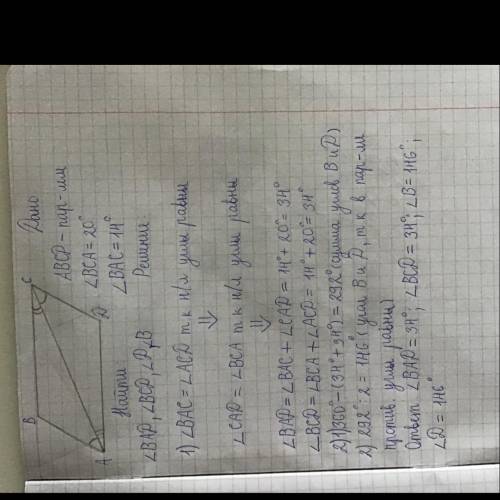 B C Дано
ABCD - пар-мм
∠BCA = 20°
∠BAC = 14°
A D
Найти
∠BAD, ∠BCD, ∠D, ∠B
Решение
1) ∠BAC = ∠ACD т к н/л углы равны
⇓
∠CAD = ∠BCA т к н/л углы равны
⇓
∠BAD = ∠BAC + ∠CAD = 14° + 20° = 34°
∠BCD = ∠BCA + ∠ACD = 14° + 20° = 34°
2) 1) 360° - (34° + 34°) = 292° (сумма углов B и D)
2) 292° : 2 = 146° (углы B и D, т к в пар-мм
против. углы равны)
Ответ ∠BAD = 34°; ∠BCD = 34°; ∠B = 146°;
∠D = 146°